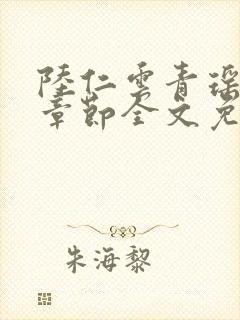 陸仁雲青瑶
章節全文免
朱海黎